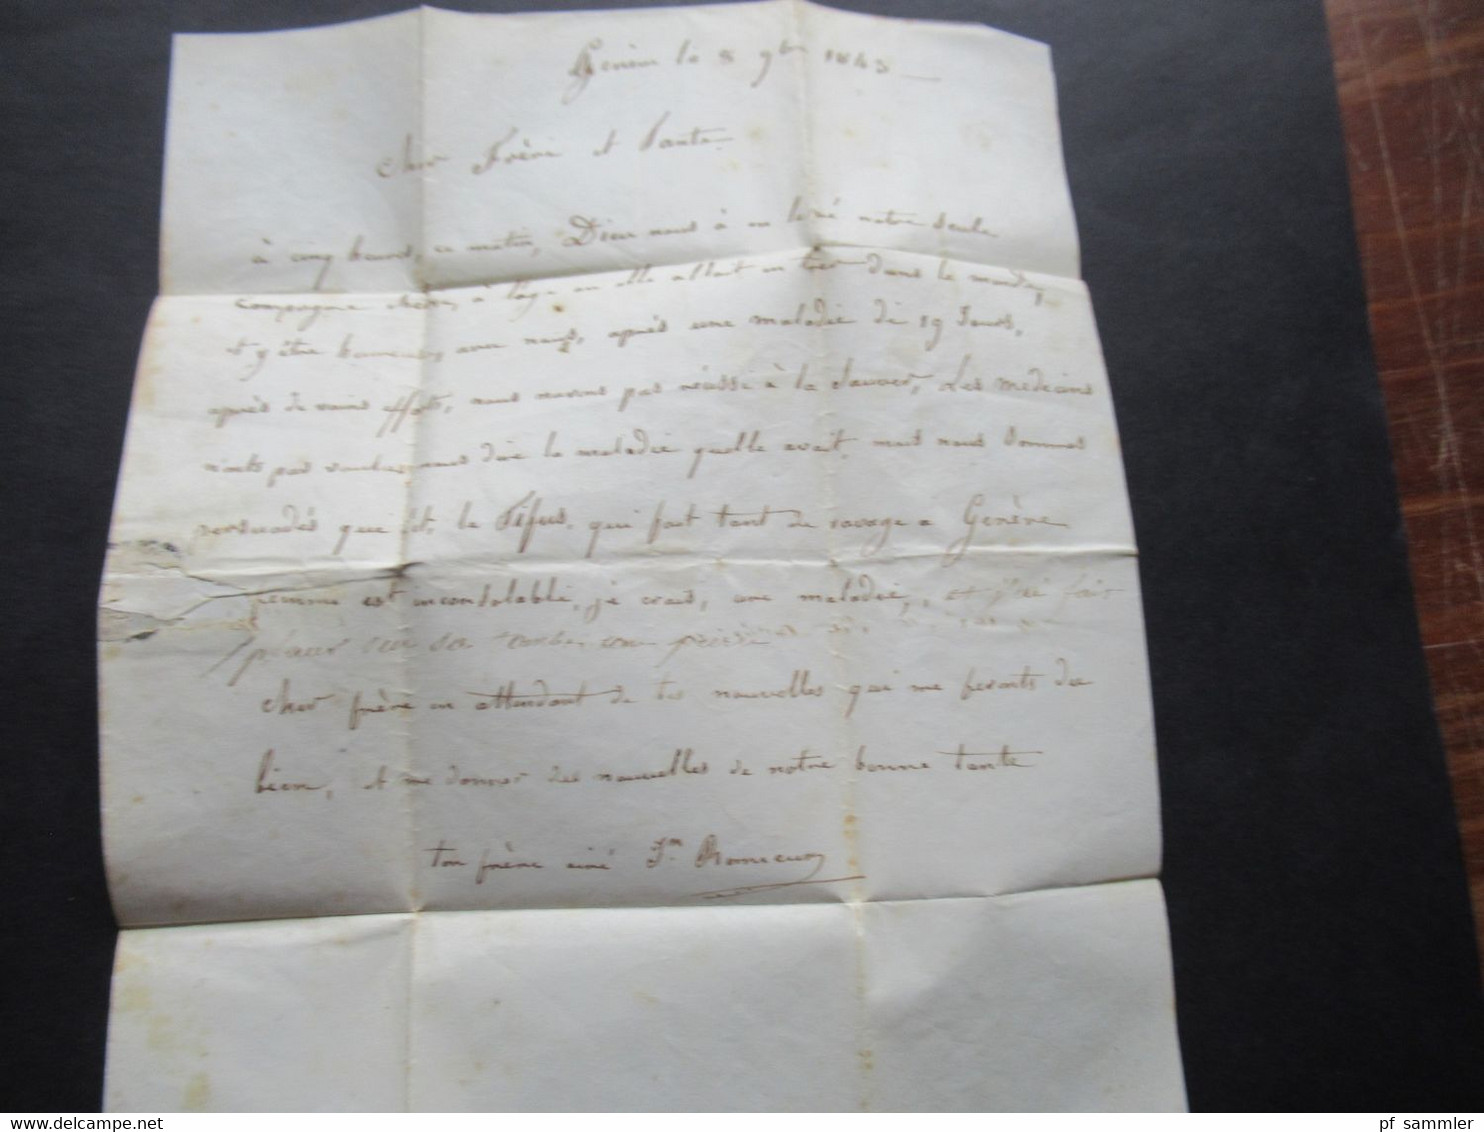 Genève le 8 9bre 1843
Cher Frère et Tante.
à cinq heures, ce matin, Dieu nous à en levé notre seule
compagne chérie, à l'age ou elle allait en trer dans le monde,
et y être heureuse, avec nous, après une maladie de 19 Jours,
après de vains efforts, nous navons pas réussi à la Sauver, Les Medecins
n'onts pas voulus nous dire la maladie quelle avait, mais nous Sommes
persuadés que c'est le Tifus, qui fait tant de ravage a Genève
femme est inconsolable, je crais, une maladie, et j'ai fait
placer sur sa tombe une
cher frère en attendant de tes nouvelles qui me feronts du
bien, et me donner des nouvelles de notre bonne tante
ton frère ainé Jn. Romieux
pf sammler